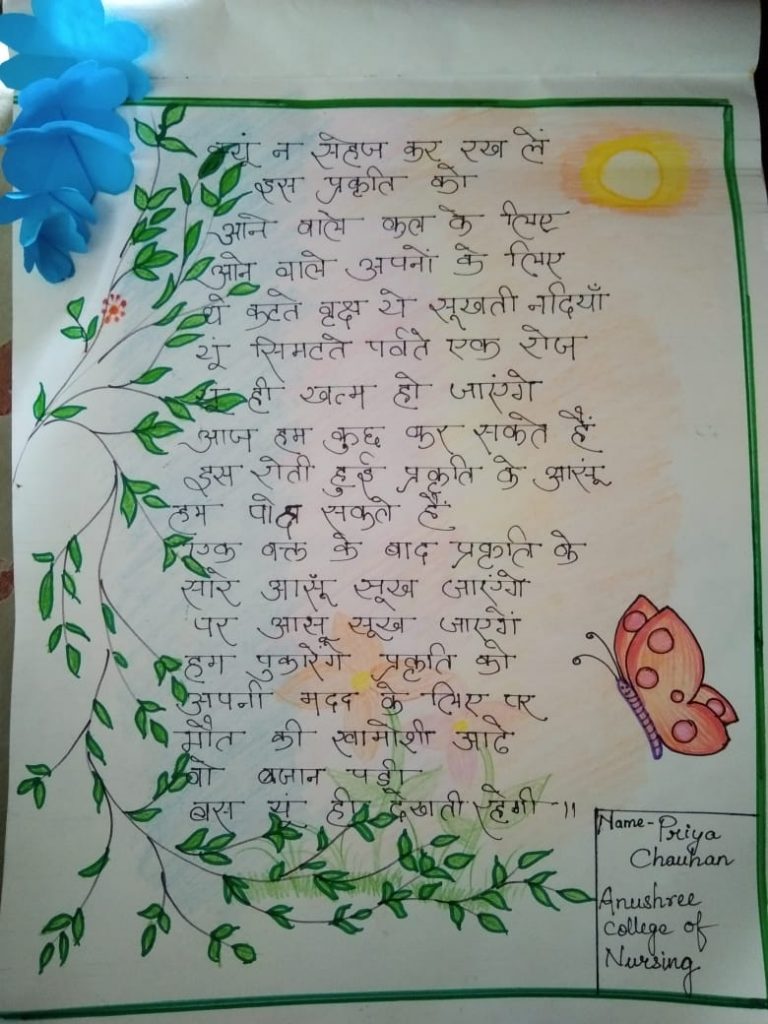 क्यूं न सेहज कर रख लें
इस प्रकृति को
आने वाले कल के लिए
आने वाले अपनों के लिए
ये कटते वृक्ष ये सूखती नदियाँ
यूं सिमटते पर्वत एक रोज
यूं ही खत्म हो जाएंगे
आज हम कुछ कर सकते हैं
इस रोती हुई प्रकृति के आसूं
हम पोछ सकते हैं
एक वक्त के बाद प्रकृति के
सारे आसूँ सूख जाएंगे
पर आसू सूख जाएगें
हम पुकारेंगे प्रकृति को
अपनी मदद के लिए पर
मौत की खामोशी ओढे
वो बेजान पड़ी
बस यूं ही देखती रहेगी ।।
Name- Priya
Chauhan
Anushree
College of
Nursing